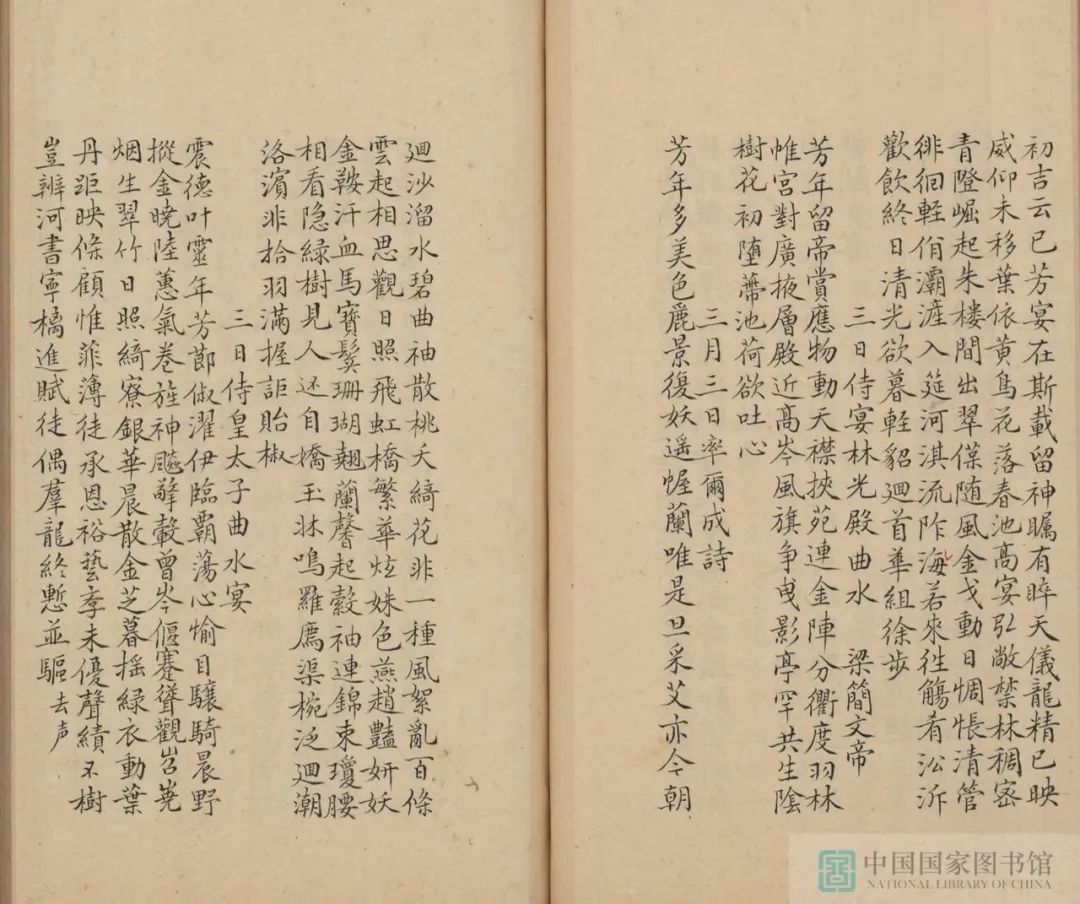 初吉云已芳宴在斯載留神矚有睟天儀龍精已映
威仰未移葉依黄鳥花落春池高宴弘敞禁林稠密
青磴崛起朱楼間出翠葆随風金戈動日惆悵清管
徘徊軽佾灞滻入筵河淇流阼海若來往觴肴沿泝
歡飲終日清光欲暮軽貂廻首華組徐步
三日侍宴林光殿曲水 梁簡文帝
芳年留帝賞應物動天襟挾苑連金陣分衢度羽林
帷宮對廣掖層殿近高岑風旗争曳影亭罕共生陰
樹花初堕蔕池荷欲吐心
三月三日率爾成詩
芳年多美色麗景復妖遥幄蘭唯是旦采艾亦今朝
廻沙溜水碧曲袖散桃夭綺花非一種風絮亂百條
雲起相思觀日照飛虹橋繁華炫姝色燕趙豔妍妖
金鞍汗血馬寶髻珊瑚翹蘭馨起縠袖連錦束瓊腰
相看隐緑樹見人还自嬌玉牀鳴羅薦渠椀泛廻潮
洛濵非拾羽滿握詎貽椒
三日侍皇太子曲水宴
震德叶靈年芳莭俶濯伊臨覇蕩心愉目驤騎晨野
摐金曉陸蕙氣卷旌神飈擎轂曾岑偃蹇聳觀岧嶤
烟生翠竹日照綺寮銀華晨散金芝暮揺緑衣動葉
丹距映條顧惟菲薄徒承恩裕藝季未優聲績不樹
豈辨河書寧橘進賦徒偶羣龍終慙並驅去声
中国国家图书馆
NATIONAL LIBRARY OF CHINA